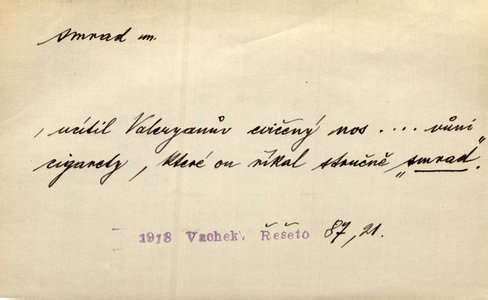 smrad m.
, ucítil Valeryanův cvičený nos .... vůni
cigarety, které on říkal stručně „smrad".
1918 Vachek, Řešeto 87, 21.